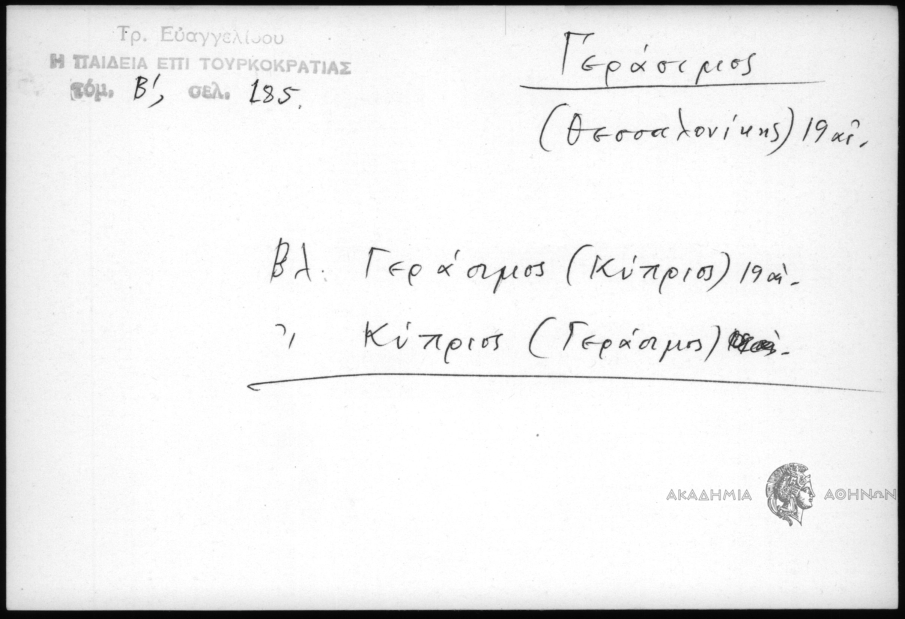 Τρ. Εὐαγγελίδου
Η ΠΑΙΔΕΙΑ ΕΠΙ ΤΟΥΡΚΟΚΡΑΤΙΑΣ
τόμ. Β', σελ. 185.
Γεράσιμος
(Θεσσαλονίκης) 19 αἰ.
Βλ. Γεράσιμος (Κύπριος) 19 αἰ.
〃 Κύπριος (Γεράσιμος)
ΑΚΑΔΗΜΙΑ ΑΘΗΝΩΝ